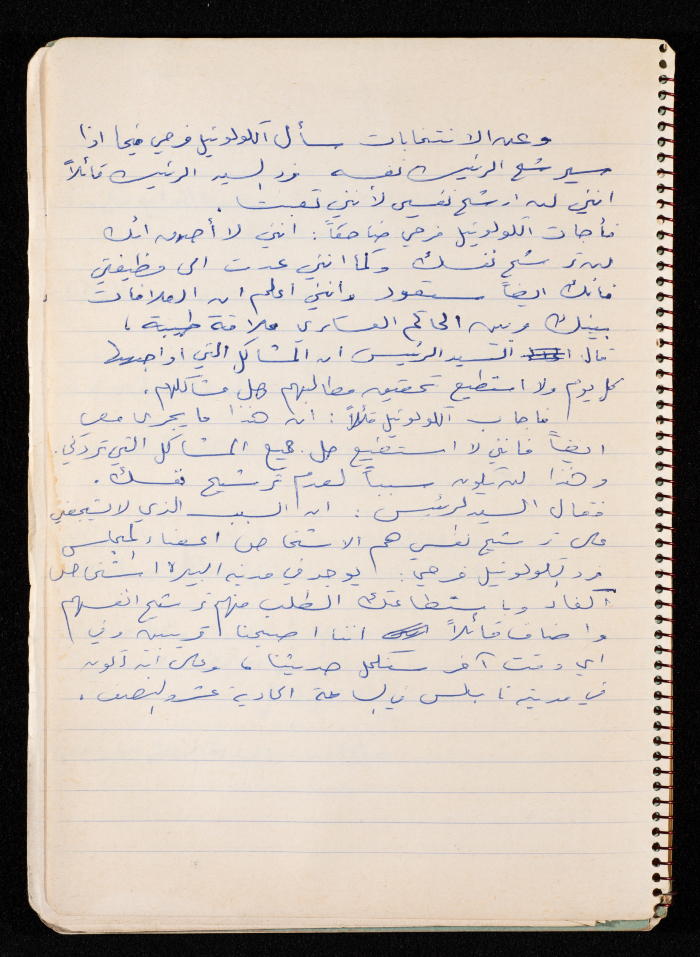 وعن الانتخابات سأل الكولونيل فرحي فيما اذا
سيرشح الرئيس نفسه فرد السيد الرئيس قائلاً
انني لن ارشح نفسي لأنني تعبت .
فأجاب الكولونيل فرحي ضاحكاً : انني لا أصدق انك
لن ترشح نفسك وكما انني عدت الى وظيفتي
فانك ايضاً ستعود وانني اعلم ان العلاقات
بينك وبين الحاكم العسكري علاقة طيبة ،
قال السيد الرئيس ان المشاكل التي أواجهها
كل يوم ولا استطيع تحقيق مطالبهم وحل مشاكلهم .
فاجاب الكولونيل قائلاً : ان هذا ما يجري معي
ايضاً فانني لا استطيع حل جميع المشاكل التي تردني .
وهذا لن يكون سبباً لعدم ترشيح نفسك .
فقال السيد الرئيس : ان السبب الذي لا يشجعني
على ترشيح نفسي هم الاشخاص اعضاء المجلس
فرد الكولونيل فرحي : يوجد في مدينة البيرة اشخاص
اكفاء وباستطاعتك الطلب منهم ترشيح انفسهم
واضاف قائلاً اننا اصبحنا قريبين وفي
اي وقت آخر سنكمل حديثنا ، وعلي ان اكون
في مدينة نابلس في الساعة الحادية عشر والنصف .